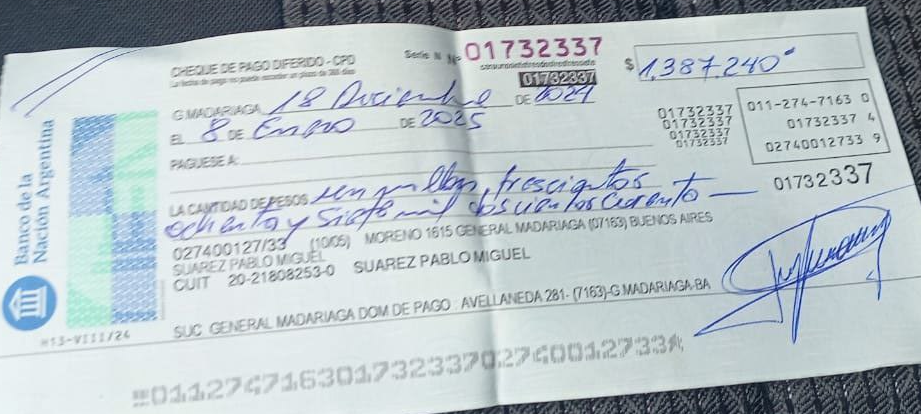 CHEQUE DE PAGO DIFERIDO - CPD
Serie N Nº 01732337
La fecha de pago no puede exceder un plazo de 360 días
01732337
$ 1.387.240
G.MADARIAGA 18 Diciembre DE 2024
EL 8 DE Enero DE 2025
PAGUESE A:
01732337
01732337
01732337
01732337
011-274-7163 0
01732337 4
02740012733 9
01732337
LA CANTIDAD DE PESOS un millon, trescientos
ochenta y siete mil doscientos cuarenta —
027400127/33 (10/05) MORENO 1615 GENERAL MADARIAGA (07163) BUENOS AIRES
SUAREZ PABLO MIGUEL
CUIT 20-21808253-0 SUAREZ PABLO MIGUEL
SUC GENERAL MADARIAGA DOM DE PAGO : AVELLANEDA 281- (7163)-G.MADARIAGA-BA
Banco de la
Nación Argentina
H13-VIII/24
01127471630173233702740012733